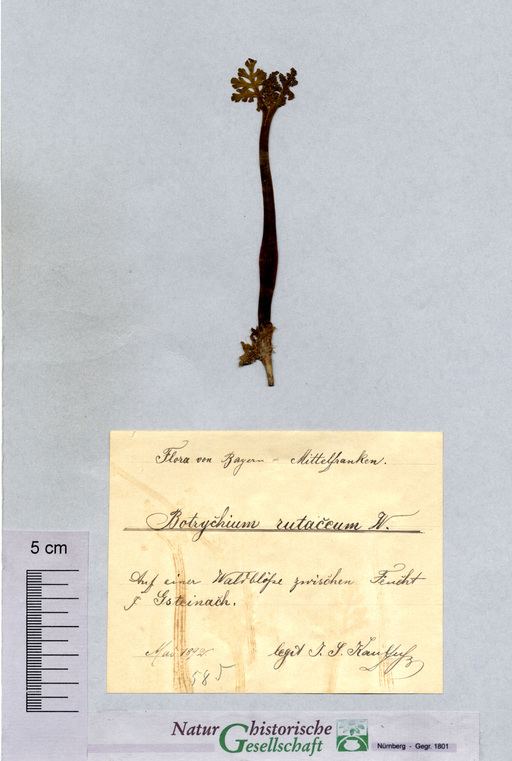 Flora von Bayern - Mittelfranken.
Botrychium rutaceum W.
Auf einer Waldblöße zwischen Feucht
Gsteinach.
Mai 1892
legit J. S. 
585
5 cm
Naturhistorische
Gesellschaft
Nürnberg - Gegr. 1801